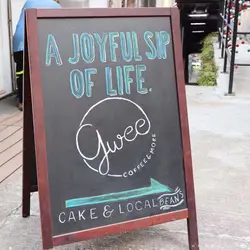 A JOYFUL SIP
OF LIFE.
gwee
COFFEE & MORE
CAKE & LOCAL BEANS